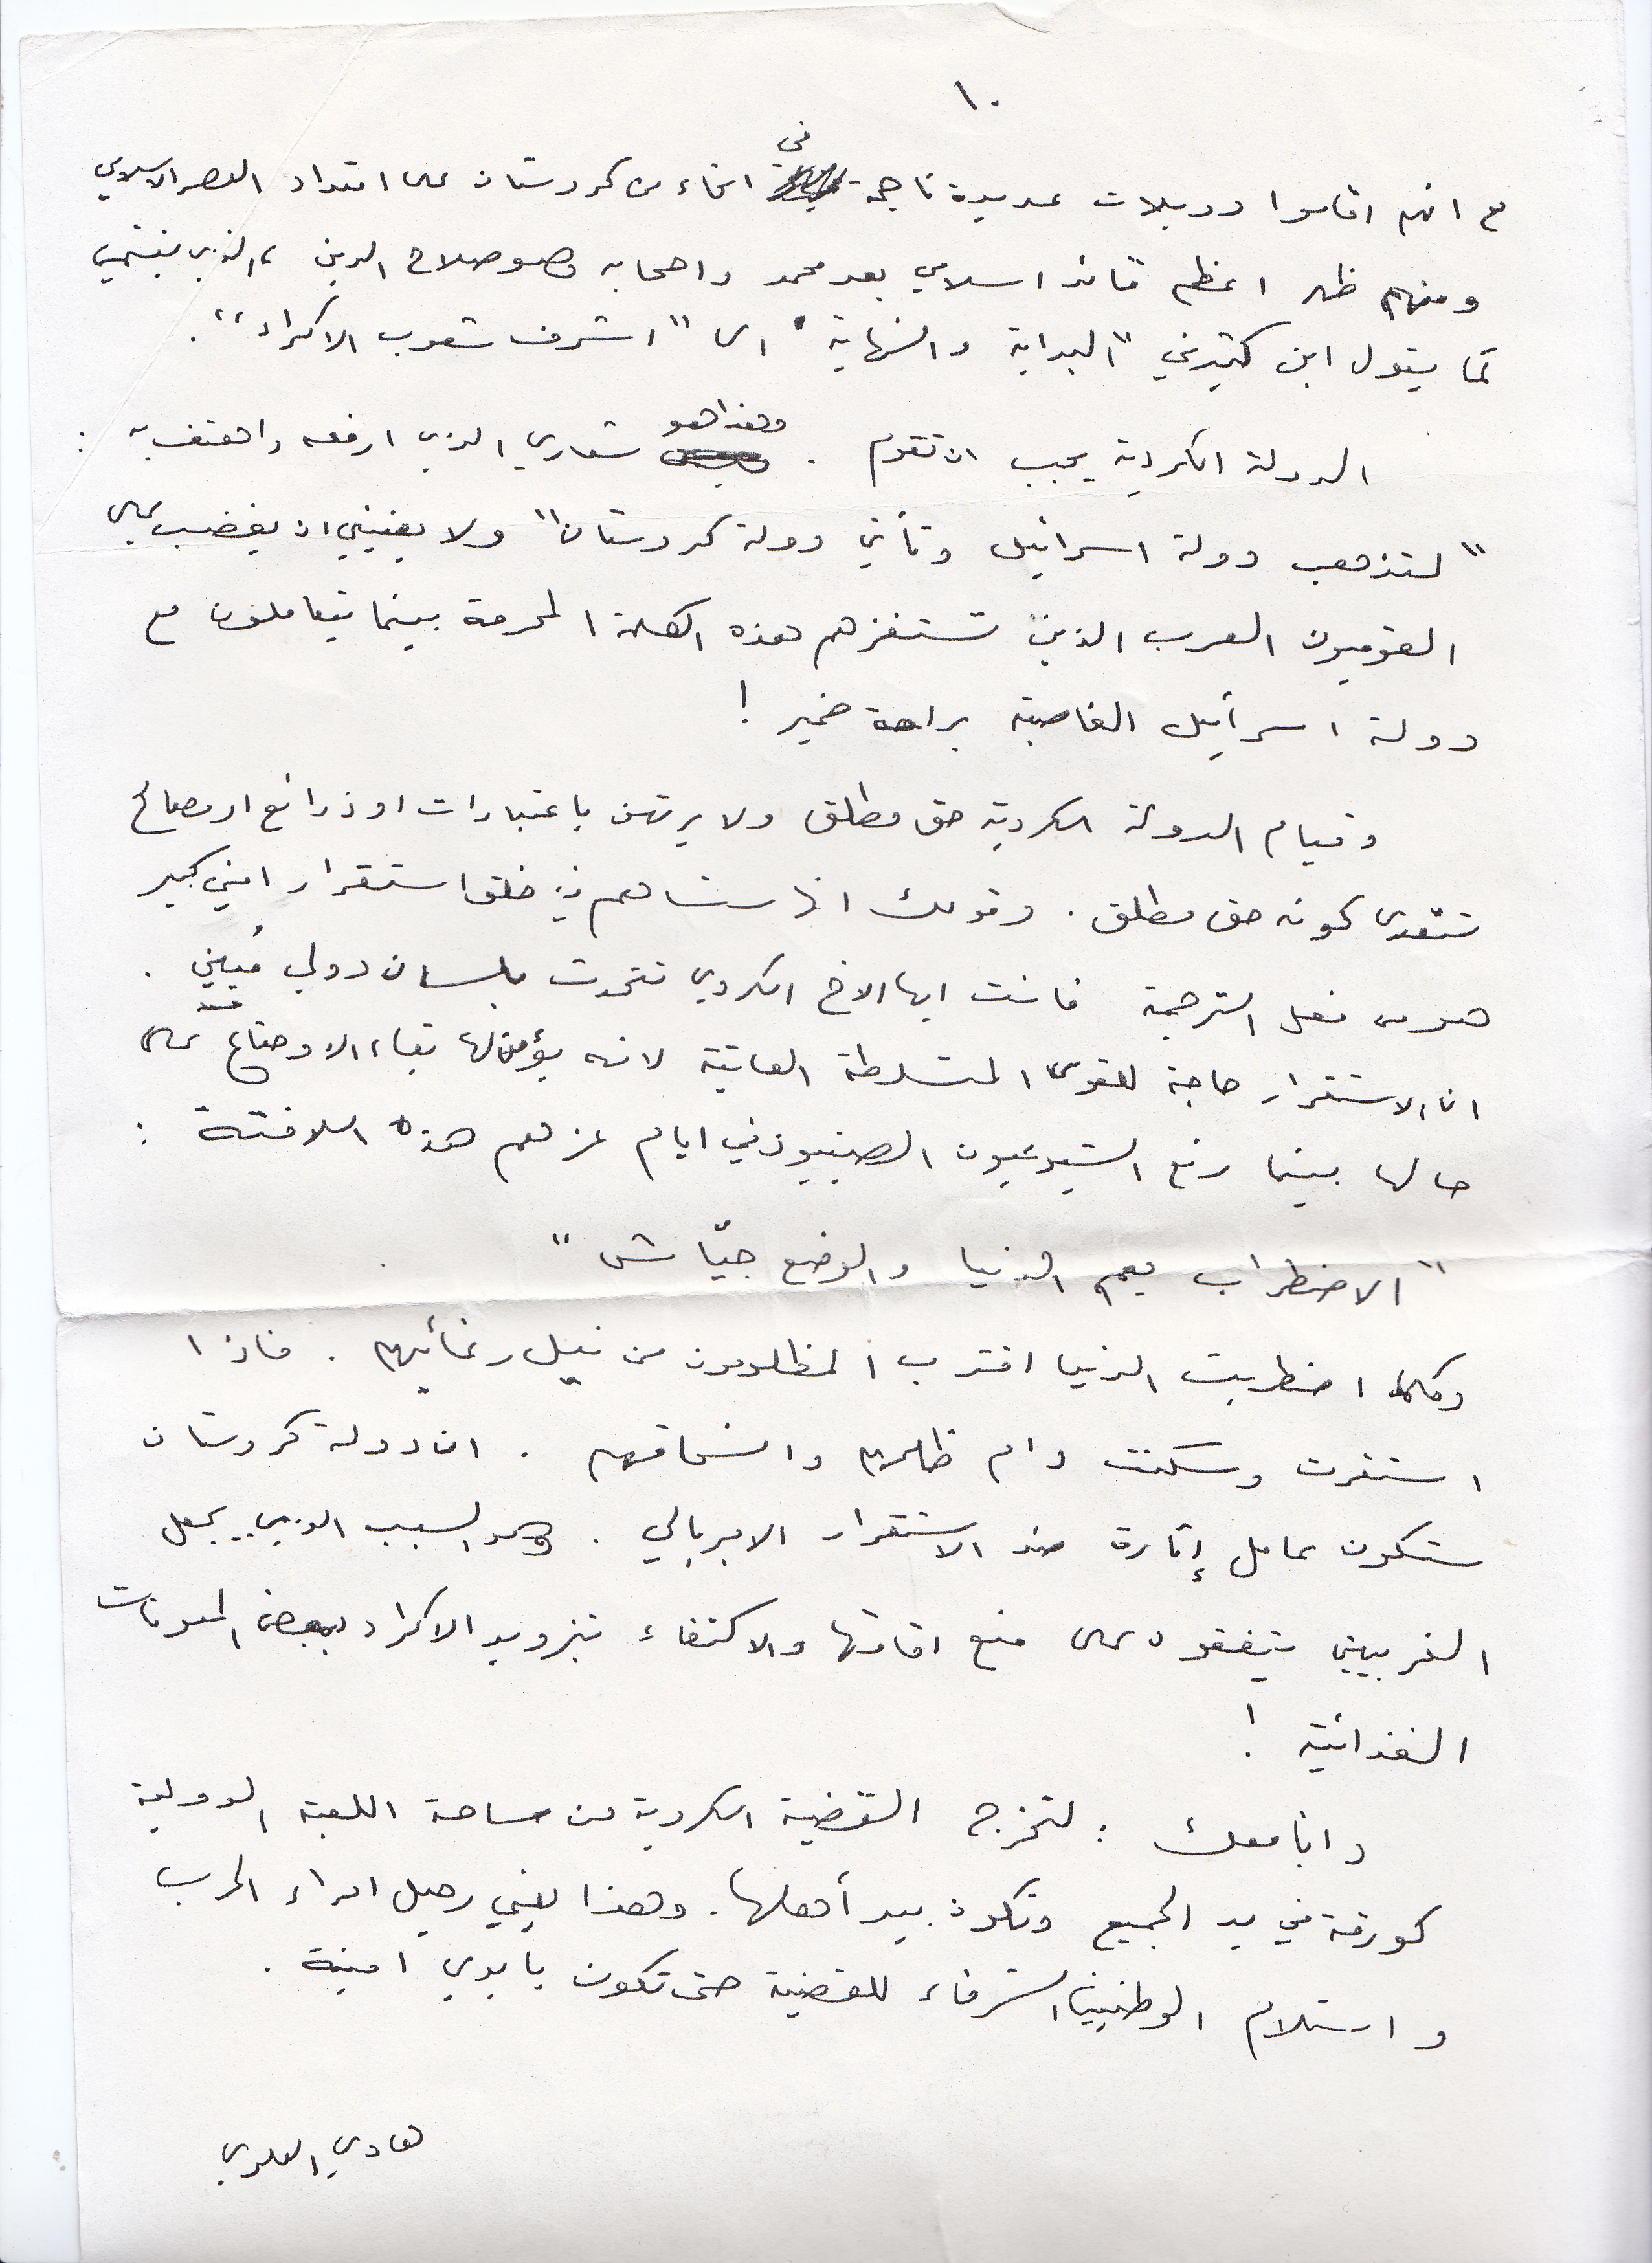 ١٠
مع انهم اقاموا دويلات عديدة ناجحة في انحاء من كردستان على امتداد العصر الاسلامي
ومنهم ظهر اعظم قائد اسلامي بعد محمد واصحابه وهو صلاح الدين ، الذي ينتمي
كما يقول ابن كثير في "البداية والنهاية" الى "اشرف شعوب الاكراد".
الدولة الكردية يجب ان تقوم . وهذا هو شعاري الذي ارفعه واهتف به :
"لتذهب دولة اسرائيل وتأتي دولة كردستان" ولا يعنيني ان يغضب علي
القوميون العرب الذين تستفزهم هذه الكلمة المحرمة بينما يتعاملون مع
دولة اسرائيل الغاصبة براحة ضمير !
وقيام الدولة الكردية حق مطلق ولا يرتهن باعتبارات او ذرائع او مصالح
تتعدى كونه حق مطلق . وقولك انها ستساهم في خلق استقرار امني كبير
هو من فعل الترجمة فانت ايها الاخ الكردي تتحدث بلسان دولي مُبين .
ان الاستقرار حاجة للقوى المتسلطة العاتية لانه يؤمن لها بقاء الاوضاع على
حالها بينما رفع الشيوعيون الصينيون في ايام عزهم هذه اللافتة :
"الاضطراب يعم الدنيا والوضع جيّاش"
وكلما اضطربت الدنيا اقترب المظلومون من نيل رغائبهم . فاذا
استقرت وسكنت دام ظلمهم وانسحاقهم . ان دولة كردستان
ستكون عامل إثارة ضد الاستقرار الامبريالي . وهو السبب الذي يجعل
الغربيين يتفقون على منع اقامتها والاكتفاء بتزويد الاكراد ببعض المعونات
الغذائية !
وانا معك : لتخرج القضية الكردية من ساحة اللعبة الدولية
كورقة في يد الجميع وتكون بيد أهلها. وهذا يعني رحيل امراء الحرب
واستلام الوطنيين الشرفاء للقضية حتى تكون بايدي امينة .
هادي العلوي